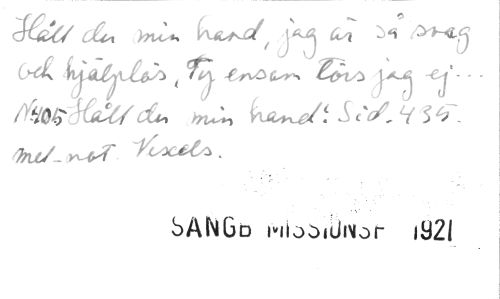 Håll du min hand, jag är så svag
och hjälplös, Ty ensam törs jag ej...
N:405 Håll du min hand! Sid. 435.
mel-not. Vexels.
SÅNGB MISSIONSF 1921